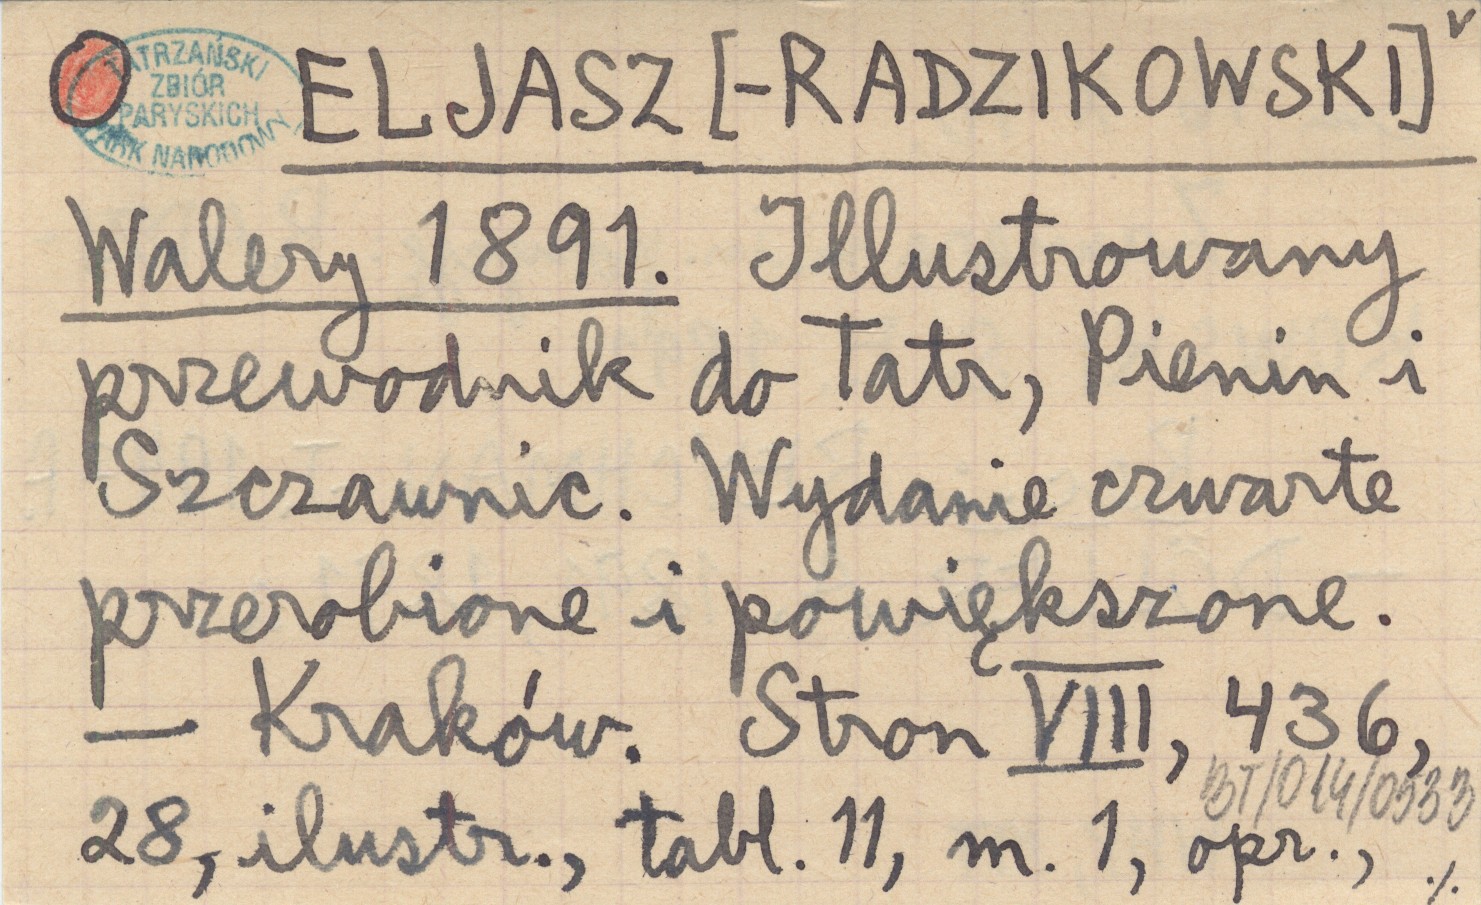 TATRZAŃSKI
ZBIÓR
PARYSKICH
PARK NARODOWY
ELJASZ [-RADZIKOWSKI]
Walery 1891. Illustrowany
przewodnik do Tatr, Pienin i
Szczawnic. Wydanie czwarte
przerobione i powiększone.
— Kraków. Stron VIII, 436,
BT/014/0533
28, ilustr., tabl. 11, m. 1, opr., ./.